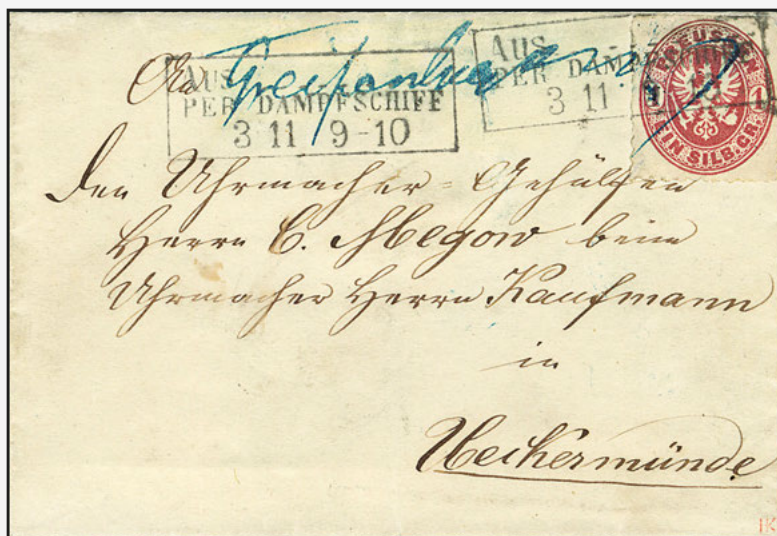 Greifenhagen
AUS
PER DAMPFSCHIFF
3 11 9-10
AUS
PER DAMPFSCHIFF
3 11
PREUSSEN
1 1
EIN SILB.GR.
An
den Uhrmacher-Gehülfen
Herrn C. Megow beim
Uhrmacher Herrn Kaufmann
in
Ueckermünde